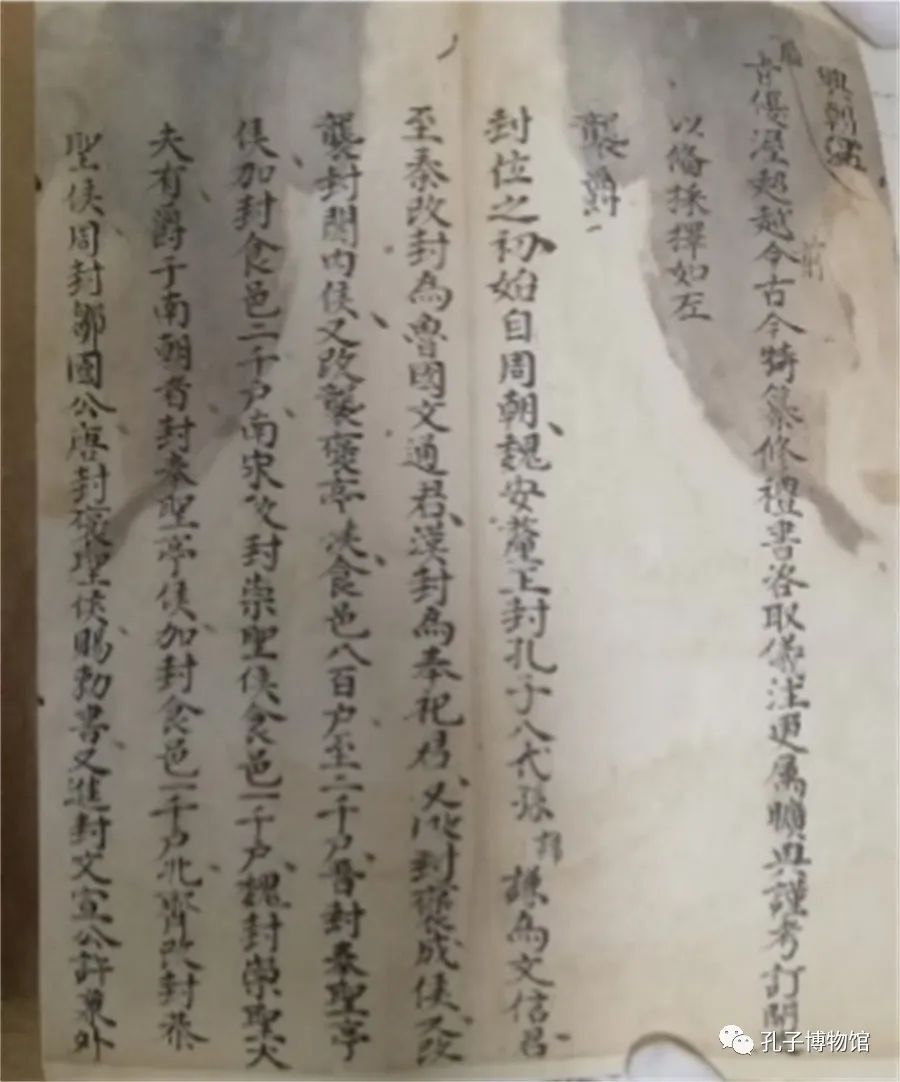 興朝
音優渥超越今古今特纂修禮書咨取儀注更屬曠典謹考訂開
前
以俻採擇如左
襲爵
封位之初始自周朝魏安釐王封孔子八代孫謙為文信君
至秦改封為魯國文通君漢封為奉祀君又改封褒成侯又改
襲封關內侯又改襲褒亭侯食邑八百户至二千户晋封奉聖亭
侯加封食邑二千户南宋改封崇聖侯食邑一千户魏封崇聖大
夫有爵于南朝晋封奉聖亭侯加封食邑一千户北齊改封恭
聖侯周封鄒國公唐封褒聖侯賜勅書又進封文宣公許兼外
孔子博物馆